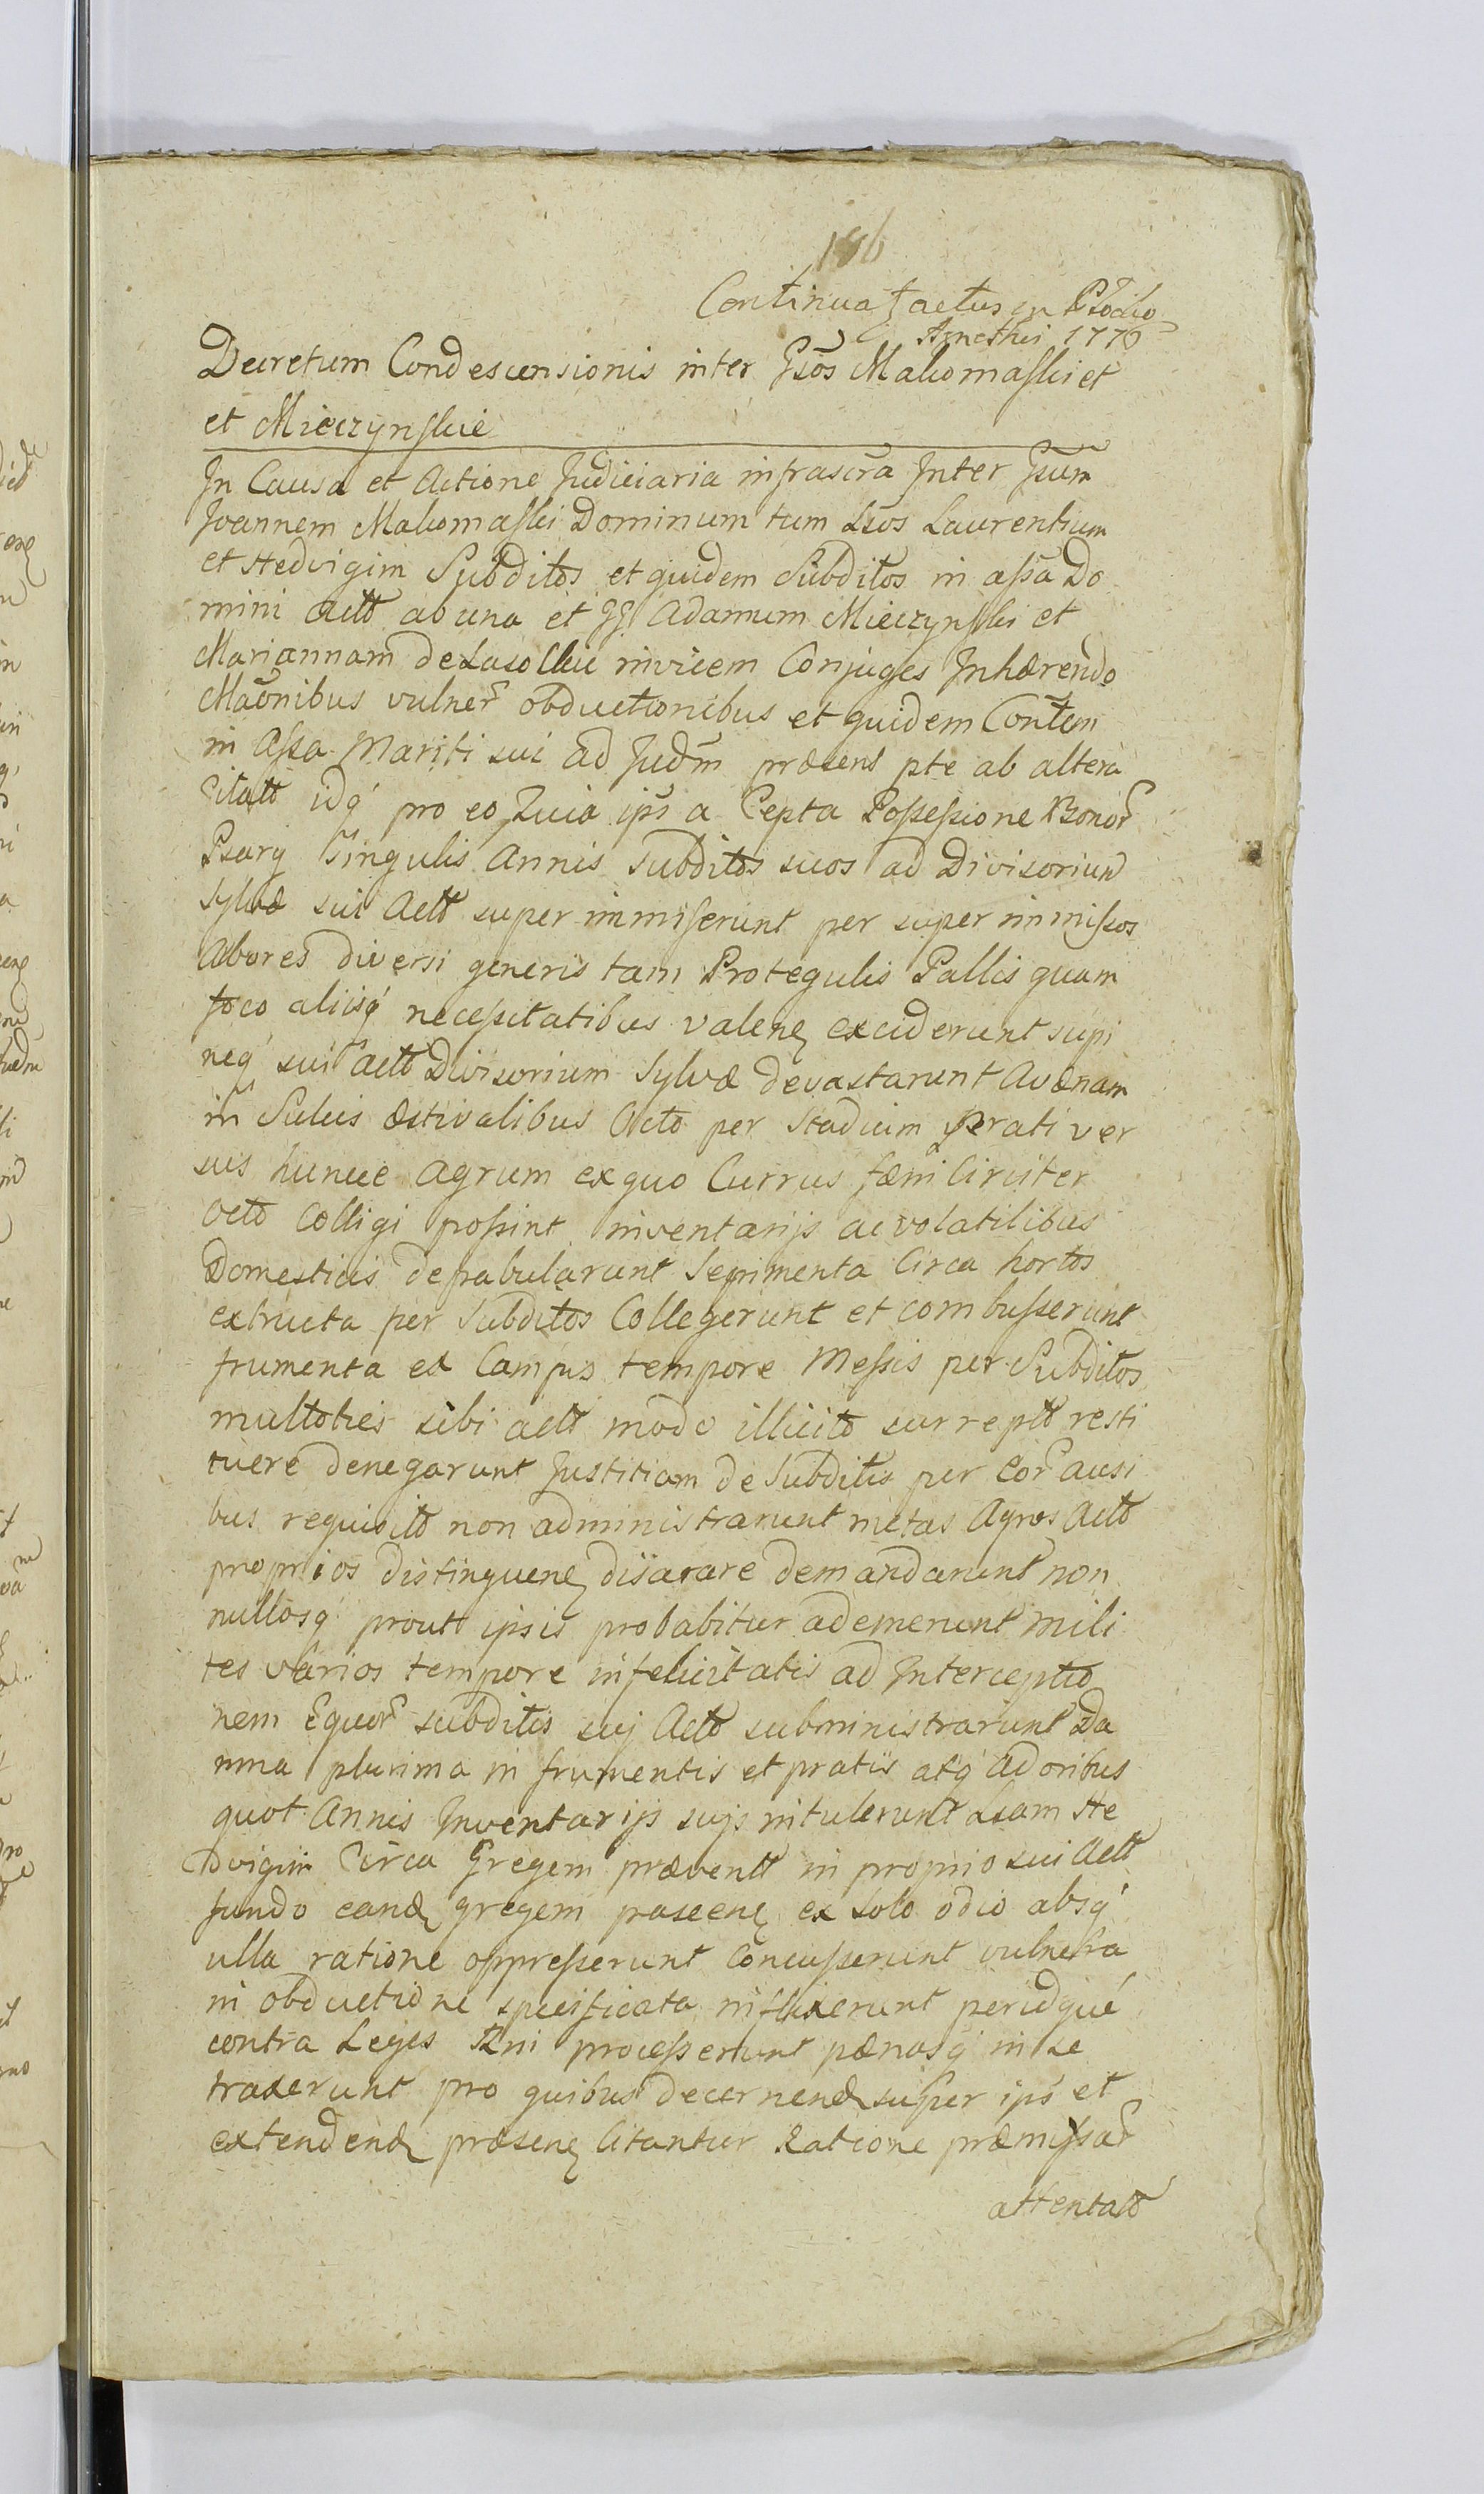 186
Continuat actus in
Agnethis 1776
Decretum Condescensionis inter Gsos Makomaski et
et Mieczynskie
In Causa et Actione Judiciaria infrascra Inter Gsum
Joannem Makomaski Dominum tum Lsos Laurentium
et Hedvigim Subditos et quidem Subditos in assa Do
mini actt ab una et GG Adamum Mieczynski et
Mariannam de invicem Conjuges Inhærendo
Maonibus vulner obductionibus et quidem Contem
in Assa Mariti sui ad Judm præsens pte ab altera
Citatt idq́ pro eo Quia ips a Cepta Possessione Bonor
Psary Singulis Annis Subditos suos ad Divisorium
Sylvæ sui Actt super immiserunt per super immissos
Abores diversi generis tam Protegulis Pallis quam
foco aliisq́ necessitatibus valene exciderunt supi
neq́ sui actt Divisorium Sylvæ devastarunt Avænam
in Sulcis æstivalibus Octo per Stadium prati ver
sus hunce Agrum ex quo Currus fæni Circiter
Octo Colligi possint inventarijs ac volatilibus
Domesticis depabularunt Sepimenta Circa hortos
extructa per Subditos Collegerunt et combusserunt
frumenta ex Campis tempore Messis per Subditos
multoties sibi actt modo illicito surreptt resti
tuere denegarunt Justitiam de Subditis per Cor ausi
bus requisitt non administrarunt metas Agros Actt
proprios distinguene disarare demandarunt non
nullosq́ proutt ipsis probabitur ademerunt mili
tes varios tempore infelicitatis ad Interceptio
nem Equor subditis suj Actt subministrarunt Da
mna plurima in frumentis et pratis atq́ Adoribus
quot Annis Inventarijs sujs intulerunt Lsam He
dvigim Circa Gregem præventt in proprio sui Actt
fundo eand gregem pascene ex solo odio absq́
ulla ratione oppresserunt Concusserunt vulnera
in obductione specificata inflixerunt peridqué
contra Leges Rni processerunt pænasq́ in se
traxerunt pro quibus decernend super ips et
extendend præsene Citantur Ratione præmissar
attentatt